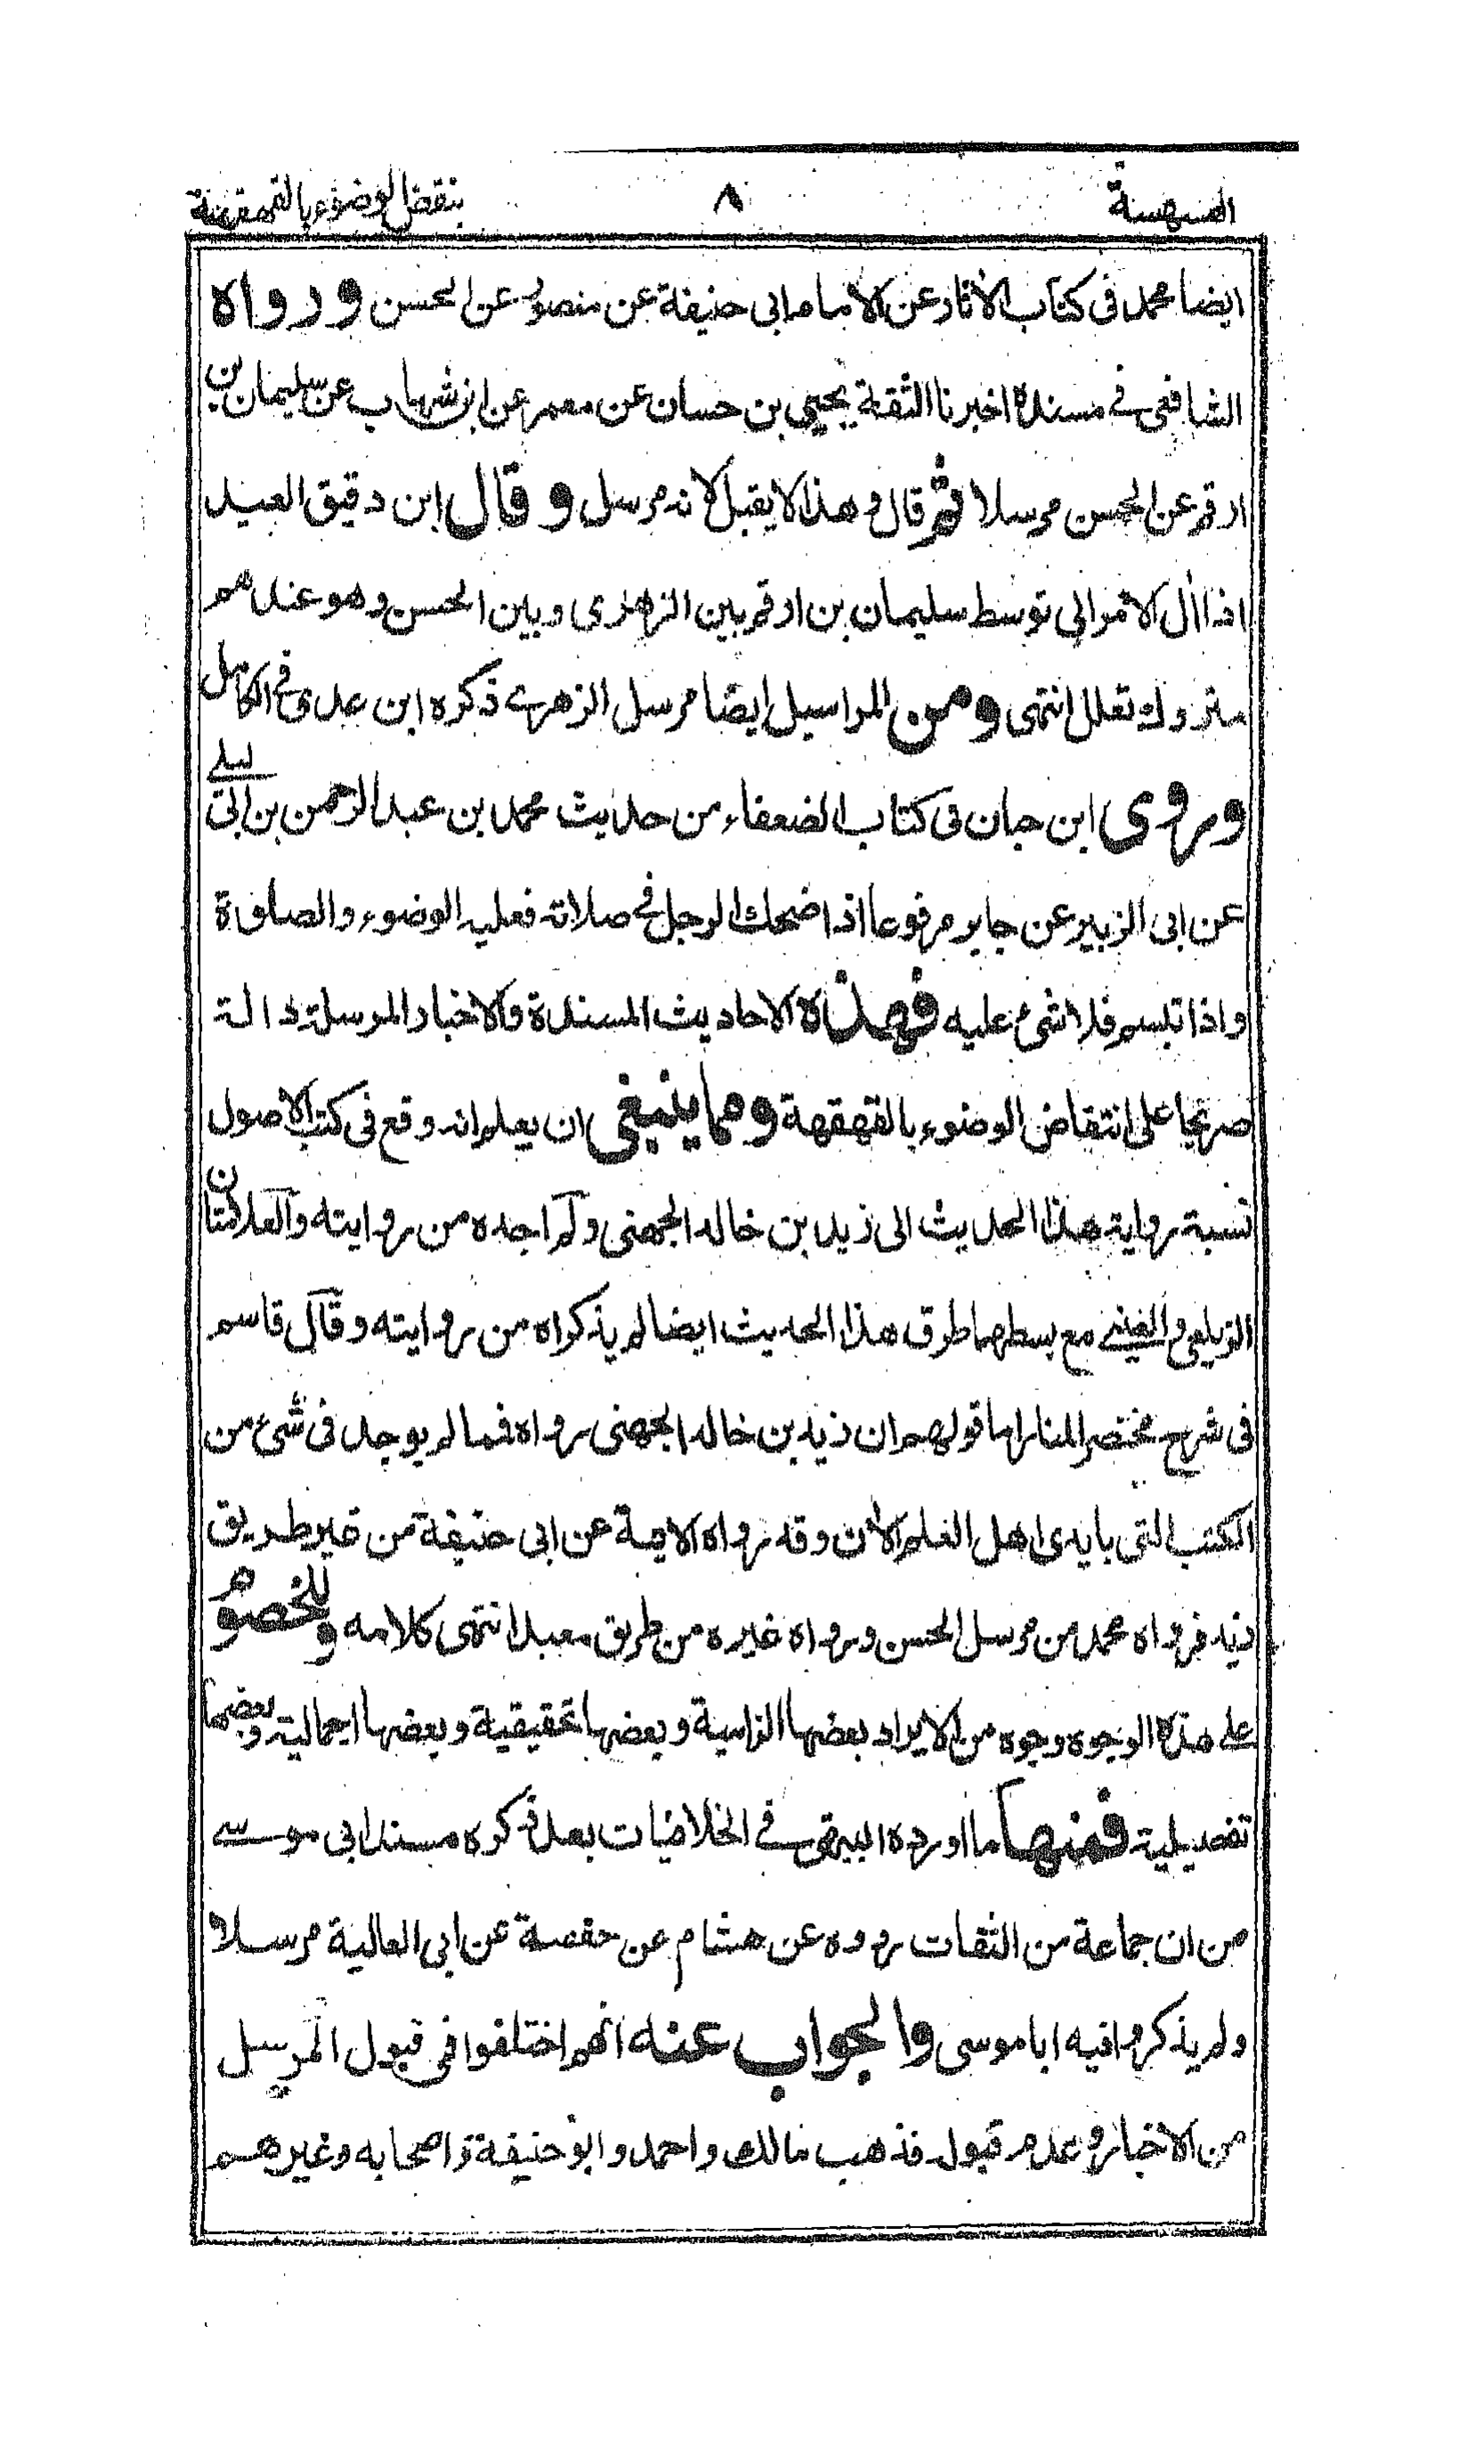 الهسهسة ٨ بنقض الوضوء بالقهقهة
ايضا محمد فى كتاب الآثار عن الامام ابى حنيفة عن منصور عن الحسن ورواه
الشافعى فى مسنده اخبرنا الثقة يحيى بن حسان عن معمر عن ابن شهاب عن سليمان بن
ارقم عن الحسن مرسلا ثم قال وهذا لا يقبل لانه مرسل وقال ابن دقيق العيد
اذا اٰل الامر الى توسط سليمان بن ارقم بين الزهرى وبين الحسن وهو عندهم
متروك تعلل انتهى ومن المراسيل ايضا مرسل الزهرى ذكره ابن عدى فى الكامل
وروى ابن حبان فى كتاب الضعفاء من حديث محمد بن عبد الرحمن بن ابى ليلى
عن ابى الزبير عن جابر مرفوعا اذا ضحك الرجل فى صلاته فعليه الوضوء والصلوة
واذا تبسم فلا شىء عليه فهذه الاحاديث المسندة والاخبار المرسلة دالة
صريحا على انتقاض الوضوء بالقهقهة ومما ينبغى ان يعلم انه وقع فى كتب الاصول
نسبة رواية هذا الحديث الى زيد بن خالد الجهنى ولم اجده من روايته والعلامتان
الزيلعى والعينى مع بسطهما طرق هذا الحديث ايضا لم يذكراه من روايته وقال قاسم
فى شرح مختصر المنار اما قولهم ان زيد بن خالد الجهنى رواه فمما لم يوجد فى شىء من
الكتب التى بايدى اهل العلم الاٰن وقد رواه الايمة عن ابى حنيفة من غير طريق
زيد فرواه محمد من مرسل الحسن ورواه غيره من طريق معبد انتهى كلامه وللخصوم
على هذه الوجوه وجوه من الايراد بعضها الزامية وبعضها تحقيقية وبعضها اجمالية وبعضها
تفصيلية فمنها ما اورده البيهقى فى الخلافيات بعد ذكره مسند ابى موسى
من ان جماعة من الثقات رووه عن هشام عن حفصة عن ابى العالية مرسلا
ولم يذكروا فيه ابا موسى والجواب عنه انهم اختلفوا فى قبول المرسل
من الاخبار وعدم قبوله فذهب مالك واحمد وابو حنيفة واصحابه وغيرهم